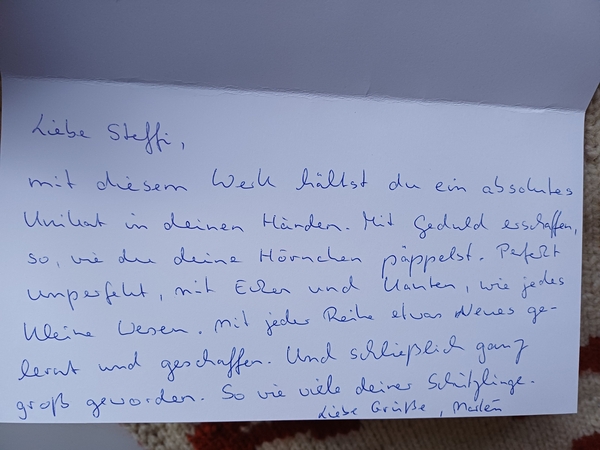 Liebe Steffi,
mit diesem Werk hältst du ein absolutes
Unikat in deinen Händen. Mit Geduld erschaffen,
so, wie du deine Hörnchen päppelst. Perfekt
unperfekt, mit Ecken und Kanten, wie jedes
kleine Wesen. Mit jeder Reihe etwas Neues ge-
lernt und geschaffen. Und schließlich ganz
groß geworden. So wie viele deiner Schützlinge.
Liebe Grüße,